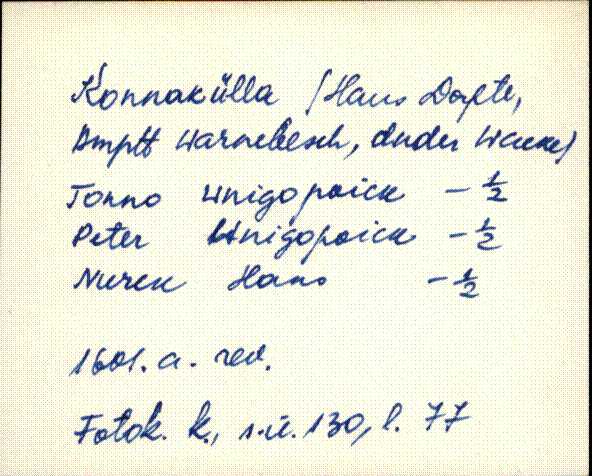 Konnakülla (Hans Dorpte,
Amptt Warnebesch, duder Wacke)
Tonno Unigopoick - 1/2
Peter Unigopoick - 1/2
Nurck Hans - 1/2
1601. a. rev.
Fotok. k., s.ü. 130, l. 77